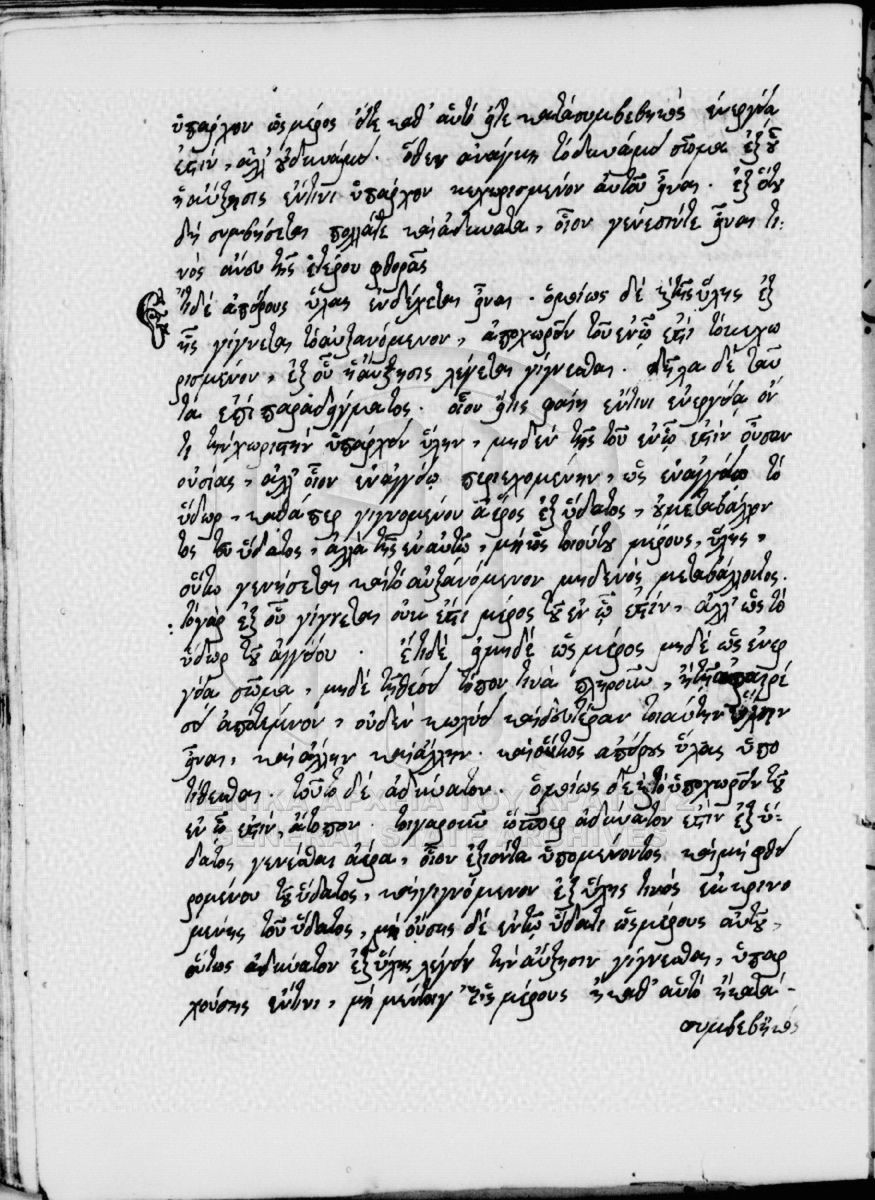 ὑπάρχον ὡς μέρος οὔτε καθ' αὑτό οὔτε κατὰ συμβεβηκὸς ἐνεργείᾳ
ἐστιν, ἀλλ' οὐ δυνάμει. ὅθεν ἀνάγκη τὸ δυνάμει σῶμα ἐξ οὗ
ἡ αὔξησις ἔν τινι ὑπάρχον κεχωρισμένον αὐτοῦ εἶναι. ἐξ ὅτου
δὴ συμβήσεται πολλά τε καὶ ἀδύνατα, οἷον γένεσίν τε εἶναι τι
νὸς ἄνευ τῆς ἑτέρου φθορᾶς
Ἔτι δὲ ἀπείρους ὕλας ἐνδέχεται εἶναι. ὁμοίως δὲ τῆς ὕλης ἐξ
ἧς γίγνεται τὸ αὐξανόμενον, ἀποχωρεῖν τοῦ ἐν ᾧ ἐστι τὸ κεχω
ρισμένον, ἐξ οὗ ἡ αὔξησις λέγεται γίγνεσθαι. δῆλα δὲ ταῦ
τα ἐπὶ παραδείγματος. οἷον εἴ τις φαίη ἔν τινι ἐνεργείᾳ ὄν
τι τὴν χωριστὴν ὑπάρχειν ὕλην, μηδὲν τῆς τοῦ ἐν ᾧ ἐστὶν οὖσαν
οὐσίας, ἀλλ' οἷον ἐν ἀγγείῳ περιεχομένην, ὡς ἐν ἀγγείῳ τὸ
ὕδωρ, καθάπερ γιγνομένου ἀέρος ἐξ ὕδατος, οὐ μεταβάλλον
τος τοῦ ὕδατος, ἀλλὰ τῆς ἐν αὐτῷ, μὴ ὡς τοιούτου μέρους, ὕλης,
οὕτω γενήσεται καὶ τὸ αὐξανόμενον μηδενὸς μεταβάλλοντος.
τὸ γὰρ ἐξ οὗ γίγνεται οὐκ ἔστι μέρος τοῦ ἐν ᾧ ἐστίν, ἀλλ' ὡς τὸ
ὕδωρ τοῦ ἀγγείου. ἔτι δὲ εἰ μηδὲ ὡς μέρος μηδὲ ὡς ἐνερ
γείᾳ σῶμα, μηδὲ τόπον τινὰ πληροῦν,
οὐδὲν κωλύει καὶ δευτέραν τοιαύτην ὕλην
εἶναι, καὶ ἄλλην καὶ ἄλλην. καὶ οὕτως ἀπείρους ὕλας ὑπο
τίθεσθαι. τοῦτο δὲ ἀδύνατον. ὁμοίως δὲ καὶ τὸ ὑποχωρεῖν τοῦ
ἐν ᾧ ἐστιν, ἄτοπον. τοιγαροῦν ὥσπερ ἀδύνατον ἐστὶν ἐξ ὕ
δατος γενέσθαι ἀέρα, οἷον ἐξιόντα ὑπομένοντος καὶ μὴ φθει
ρομένου τοῦ ὕδατος, καὶ γιγνόμενον ἐξ ὕλης τινὸς ἐκκρινο
μένης τοῦ ὕδατος, μὴ οὔσης δὲ ἐν τῷ ὕδατι ὡς μέρους αὐτοῦ,
οὕτως ἀδύνατον ἐξ ὕλης λέγειν τὴν αὔξησιν γίγνεσθαι, ὑπαρ
χούσης ἔν τινι, μὴ μέντοι ὡς μέρους ἢ καθ' αὑτὸ ἢ κατὰ
συμβεβηκός